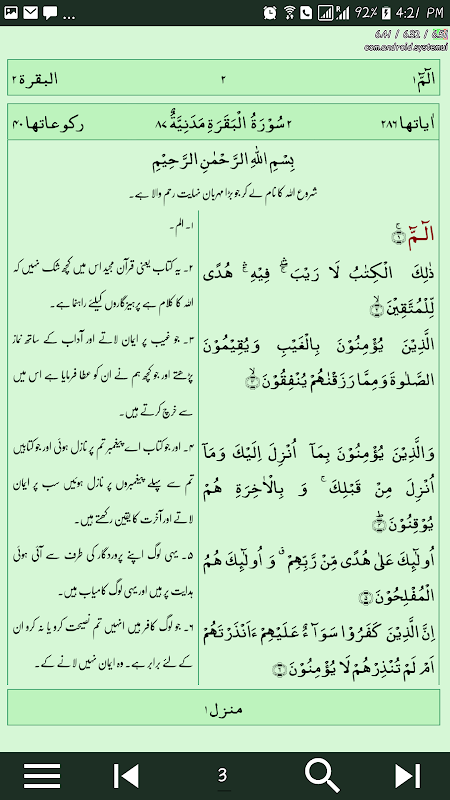 ... 92% 4:21 PM
6.41 / 6.22 / 6.51
com.android.systemui
الٓمّٓ ۱ ۲ البقرة ۲
اٰیاتها ۲۸۶ ۲ سُوْرَةُ الْبَقَرَةِ مَدَنِیَّةٌ ۸۷ رکوعاتها ۴۰
بِسْمِ اللّٰهِ الرَّحْمٰنِ الرَّحِیْمِ
شروع اللہ کا نام لے کر جو بڑا مہربان نہایت رحم والا ہے۔
الٓمّٓ ۚ﴿۱﴾
ذٰلِكَ الْكِتٰبُ لَا رَیْبَ ۛۖۚ فِیْهِ ۛۚ هُدًی
لِّلْمُتَّقِیْنَ ۙ﴿۲﴾
الَّذِیْنَ یُؤْمِنُوْنَ بِالْغَیْبِ وَیُقِیْمُوْنَ
الصَّلٰوةَ وَمِمَّا رَزَقْنٰهُمْ یُنْفِقُوْنَ ۙ﴿۳﴾
وَالَّذِیْنَ یُؤْمِنُوْنَ بِمَاۤ اُنْزِلَ اِلَیْكَ وَمَاۤ
اُنْزِلَ مِنْ قَبْلِكَ ۚ وَ بِالْاٰخِرَةِ هُمْ
یُوْقِنُوْنَ ؕ﴿۴﴾
اُولٰٓئِكَ عَلٰی هُدًی مِّنْ رَّبِّهِمْ ۗ وَ اُولٰٓئِكَ هُمُ
الْمُفْلِحُوْنَ ﴿۵﴾
اِنَّ الَّذِیْنَ كَفَرُوْا سَوَآءٌ عَلَیْهِمْ ءَاَنْذَرْتَهُمْ
اَمْ لَمْ تُنْذِرْهُمْ لَا یُؤْمِنُوْنَ ﴿۶﴾
۱۔ الم۔
۲۔ یہ کتاب یعنی قرآن مجید اس میں کچھ شک نہیں کہ
اللہ کا کلام ہے پرہیزگاروں کیلئے راہنما ہے۔
۳۔ جو غیب پر ایمان لاتے اور آداب کے ساتھ نماز
پڑھتے اور جو کچھ ہم نے ان کو عطا فرمایا ہے اس میں
سے خرچ کرتے ہیں۔
۴۔ اور جو کتاب اے پیغمبر تم پر نازل ہوئی اور جو کتابیں
تم سے پہلے پیغمبروں پر نازل ہوئیں سب پر ایمان
لاتے اور آخرت کا یقین رکھتے ہیں۔
۵۔ یہی لوگ اپنے پروردگار کی طرف سے آئی ہوئی
ہدایت پر ہیں اور یہی لوگ کامیاب ہیں۔
۶۔ جو لوگ کافر ہیں انہیں تم نصیحت کرو یا نہ کرو ان
کے لئے برابر ہے۔ وہ ایمان نہیں لانے کے۔
منزل ۱
3